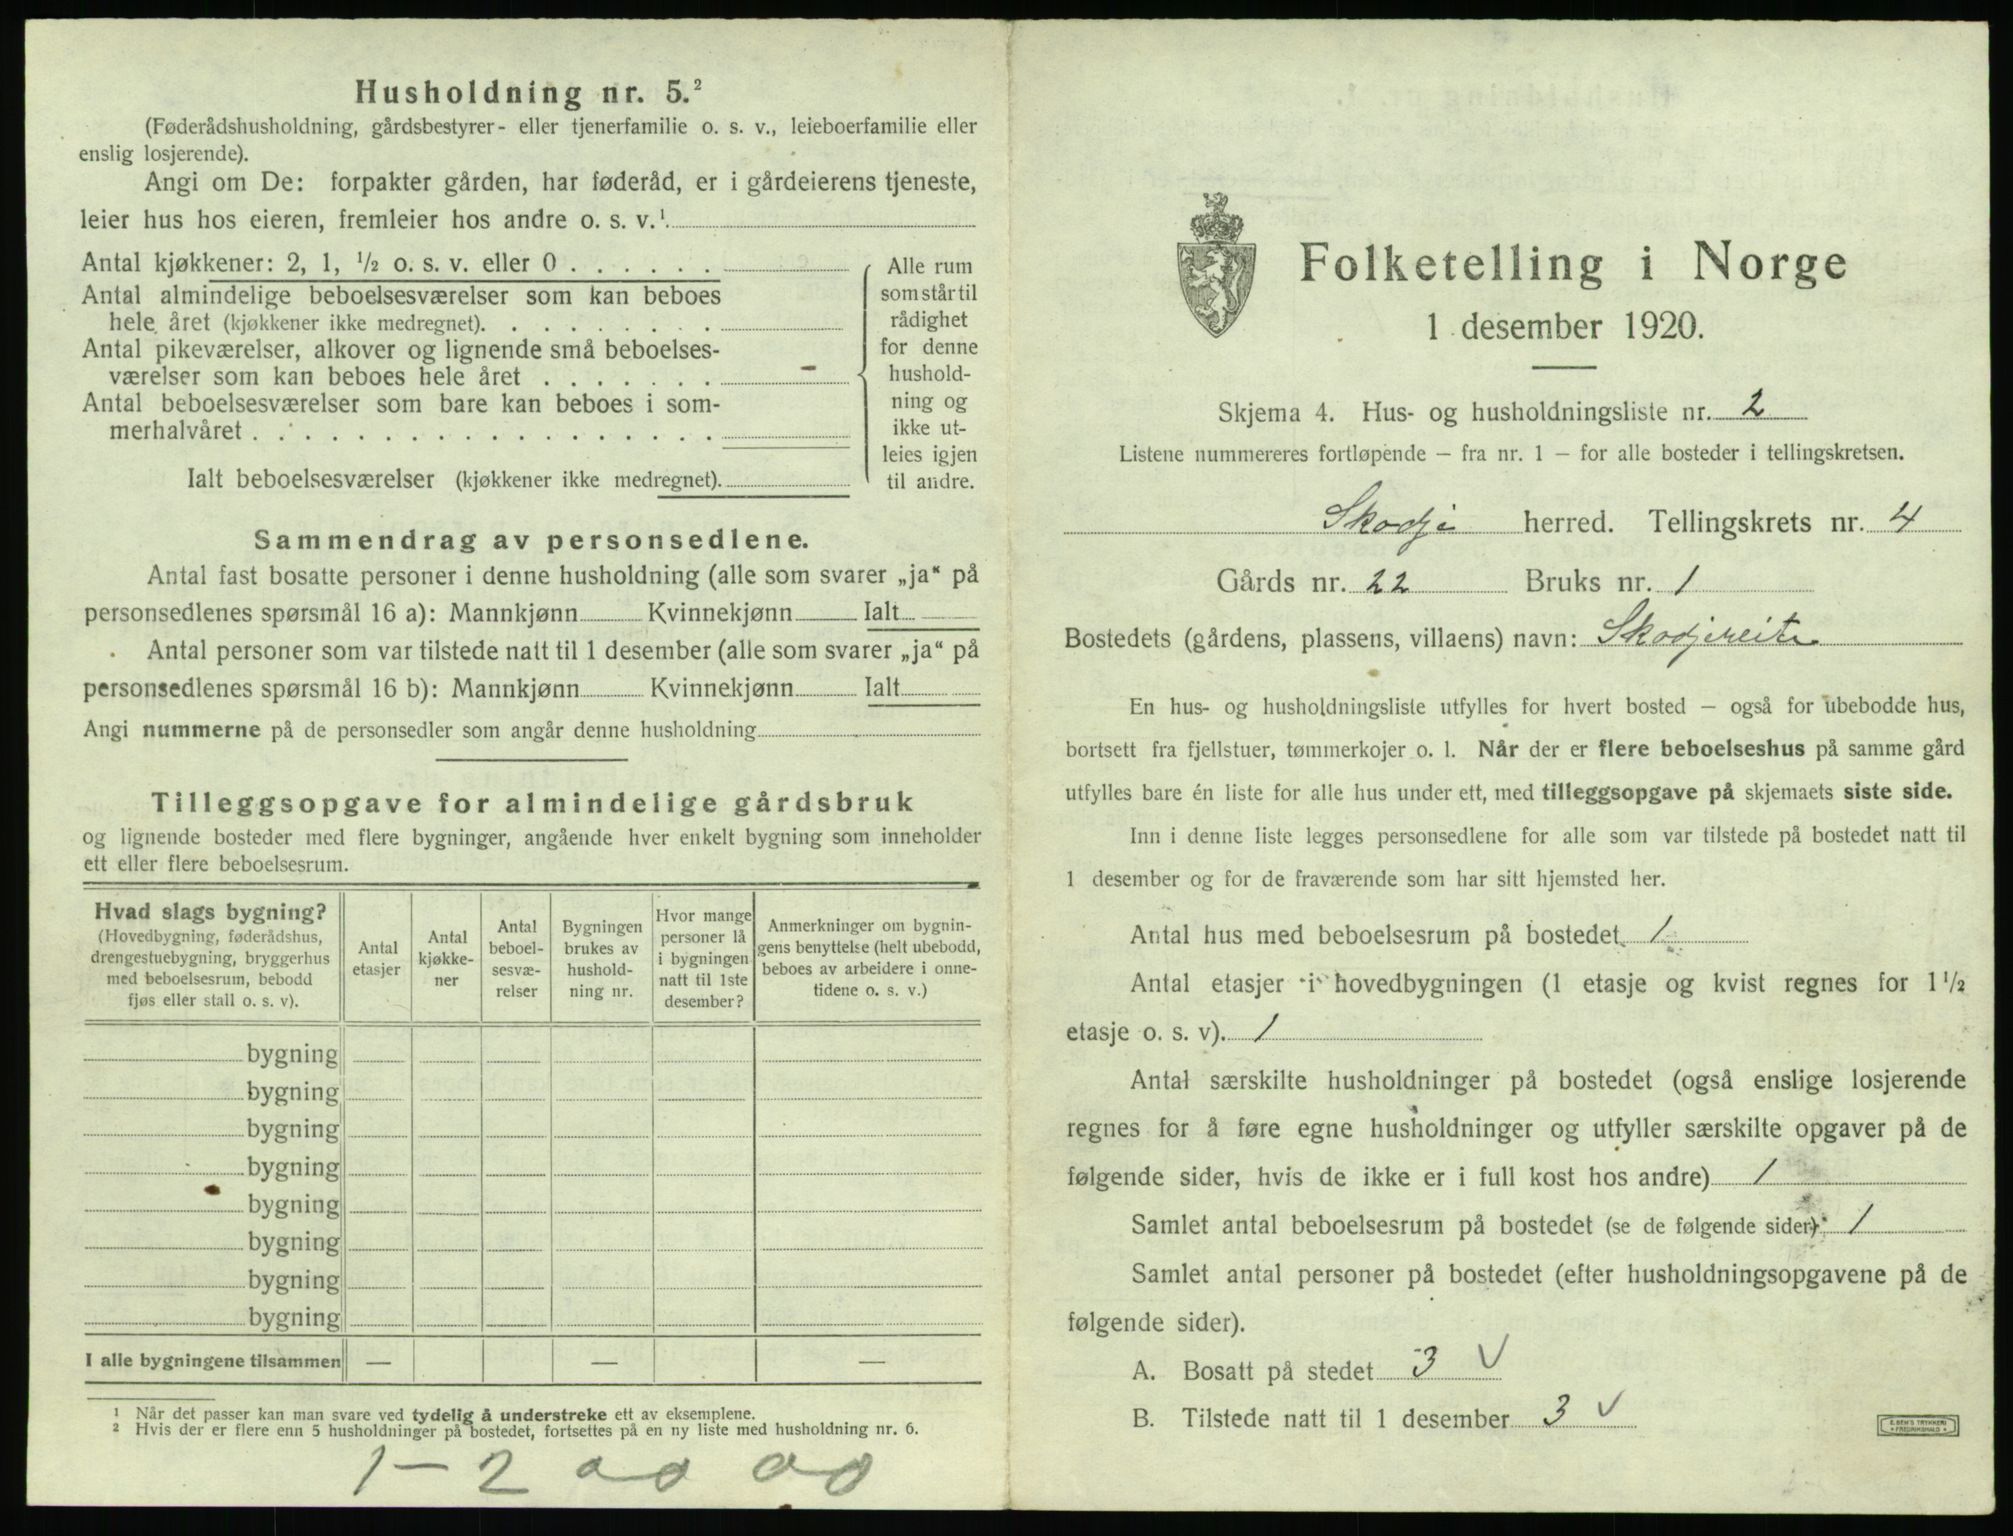 Husholdning nr. 5.²
(Føderådshusholdning, gårdsbestyrer- eller tjenerfamilie o. s. v., leieboerfamilie eller
enslig losjerende).
Angi om De: forpakter gården, har føderåd, er i gårdeierens tjeneste,
leier hus hos eieren, fremleier hos andre o. s. v.¹
Antal kjøkkener: 2, 1, ½ o. s. v. eller 0 . . . . . .
Antal almindelige beboelsesværelser som kan beboes
hele året (kjøkkener ikke medregnet). . . . . . . . .
Antal pikeværelser, alkover og lignende små beboelses-
værelser som kan beboes hele året . . . . . . .
Antal beboelsesværelser som bare kan beboes i som-
merhalvåret . . . . . . . . . . . . . . . . . .
Ialt beboelsesværelser (kjøkkener ikke medregnet).
Alle rum
som står til
rådighet
for denne
hushold-
ning og
ikke ut-
leies igjen
til andre.
Sammendrag av personsedlene.
Antal fast bosatte personer i denne husholdning (alle som svarer „ja“ på
personsedlenes spørsmål 16 a): Mannkjønn Kvinnekjønn Ialt
Antal personer som var tilstede natt til 1 desember (alle som svarer „ja“ på
personsedlenes spørsmål 16 b): Mannkjønn Kvinnekjønn Ialt
Angi nummerne på de personsedler som angår denne husholdning
Tilleggsopgave for almindelige gårdsbruk
og lignende bosteder med flere bygninger, angående hver enkelt bygning som inneholder
ett eller flere beboelsesrum.
Hvad slags bygning?
(Hovedbygning, føderådshus,
drengestuebygning, bryggerhus
med beboelsesrum, bebodd
fjøs eller stall o. s. v).
Antal
etasjer
Antal
kjøkke-
ner
Antal
beboel-
sesvæ-
relser
Bygningen
brukes av
hushold-
ning nr.
Hvor mange
personer lå
i bygningen
natt til 1ste
desember?
Anmerkninger om bygnin-
gens benyttelse (helt ubebodd,
beboes av arbeidere i onne-
tidene o. s. v.)
bygning
bygning
bygning
bygning
bygning
bygning
bygning
bygning
I alle bygningene tilsammen — — —
¹ Når det passer kan man svare ved tydelig å understreke ett av eksemplene.
² Hvis der er flere enn 5 husholdninger på bostedet, fortsettes på en ny liste med husholdning nr. 6.
1 – 2
Folketelling i Norge
1 desember 1920.
Skjema 4. Hus- og husholdningsliste nr. 2
Listene nummereres fortløpende – fra nr. 1 – for alle bosteder i tellingskretsen.
Skodje herred. Tellingskrets nr. 4
Gårds nr. 22 Bruks nr. 1
Bostedets (gårdens, plassens, villaens) navn: Skodjereite
En hus- og husholdningsliste utfylles for hvert bosted – også for ubebodde hus,
bortsett fra fjellstuer, tømmerkojer o. l. Når der er flere beboelseshus på samme gård
utfylles bare én liste for alle hus under ett, med tilleggsopgave på skjemaets siste side.
Inn i denne liste legges personsedlene for alle som var tilstede på bostedet natt til
1 desember og for de fraværende som har sitt hjemsted her.
Antal hus med beboelsesrum på bostedet 1
Antal etasjer i hovedbygningen (1 etasje og kvist regnes for 1½
etasje o. s. v). 1
Antal særskilte husholdninger på bostedet (også enslige losjerende
regnes for å føre egne husholdninger og utfyller særskilte opgaver på de
følgende sider, hvis de ikke er i full kost hos andre) 1
Samlet antal beboelsesrum på bostedet (se de følgende sider) 1
Samlet antal personer på bostedet (efter husholdningsopgavene på de
følgende sider).
A. Bosatt på stedet 3 V
B. Tilstede natt til 1 desember 3 V
E. SEM'S TRYKKERI
FREDRIKSHALD